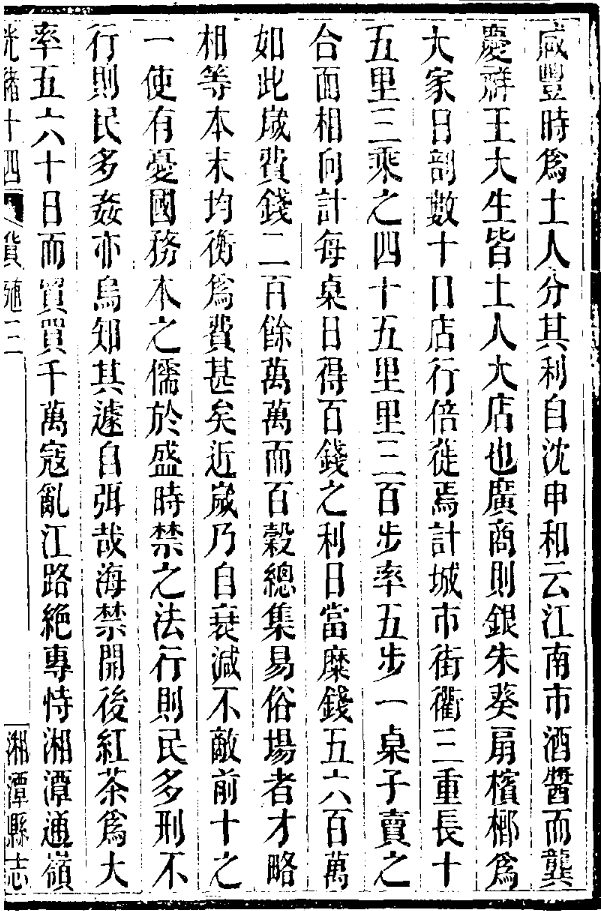 咸豐時爲土人分其利自沈申和云江南市酒醬而龔
慶祥王大生皆土人大店也廣商則銀朱葵扇檳榔爲
大家日剖數十口店行倍蓰焉計城市街衢三重長十
五里三乘之四十五里里三百步率五步一桌子賣之
合面相向計每桌日得百錢之利日當糜錢五六百萬
如此歲費錢二百餘萬萬而百穀總集易俗場者才略
相等本末均衡爲費甚矣近歲乃自衰減不敵前十之
一使有憂國務本之儒於盛時禁之法行則民多刑不
行則民多姦亦烏知其遽自弭哉海禁開後紅茶爲大
率五六十日而貿買千萬寇亂江路絶專恃湘潭通嶺
光緒十四 貨殖三 湘潭縣志